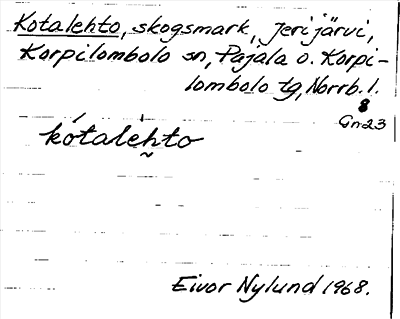 Kotalehto, skogsmark, Jerijärvi,
Korpilombolo sn, Pajala o. Korpi-
lombolo tg, Norrb. l.
8
Gn23
kótalèh̰to
Eivor Nylund 1968.